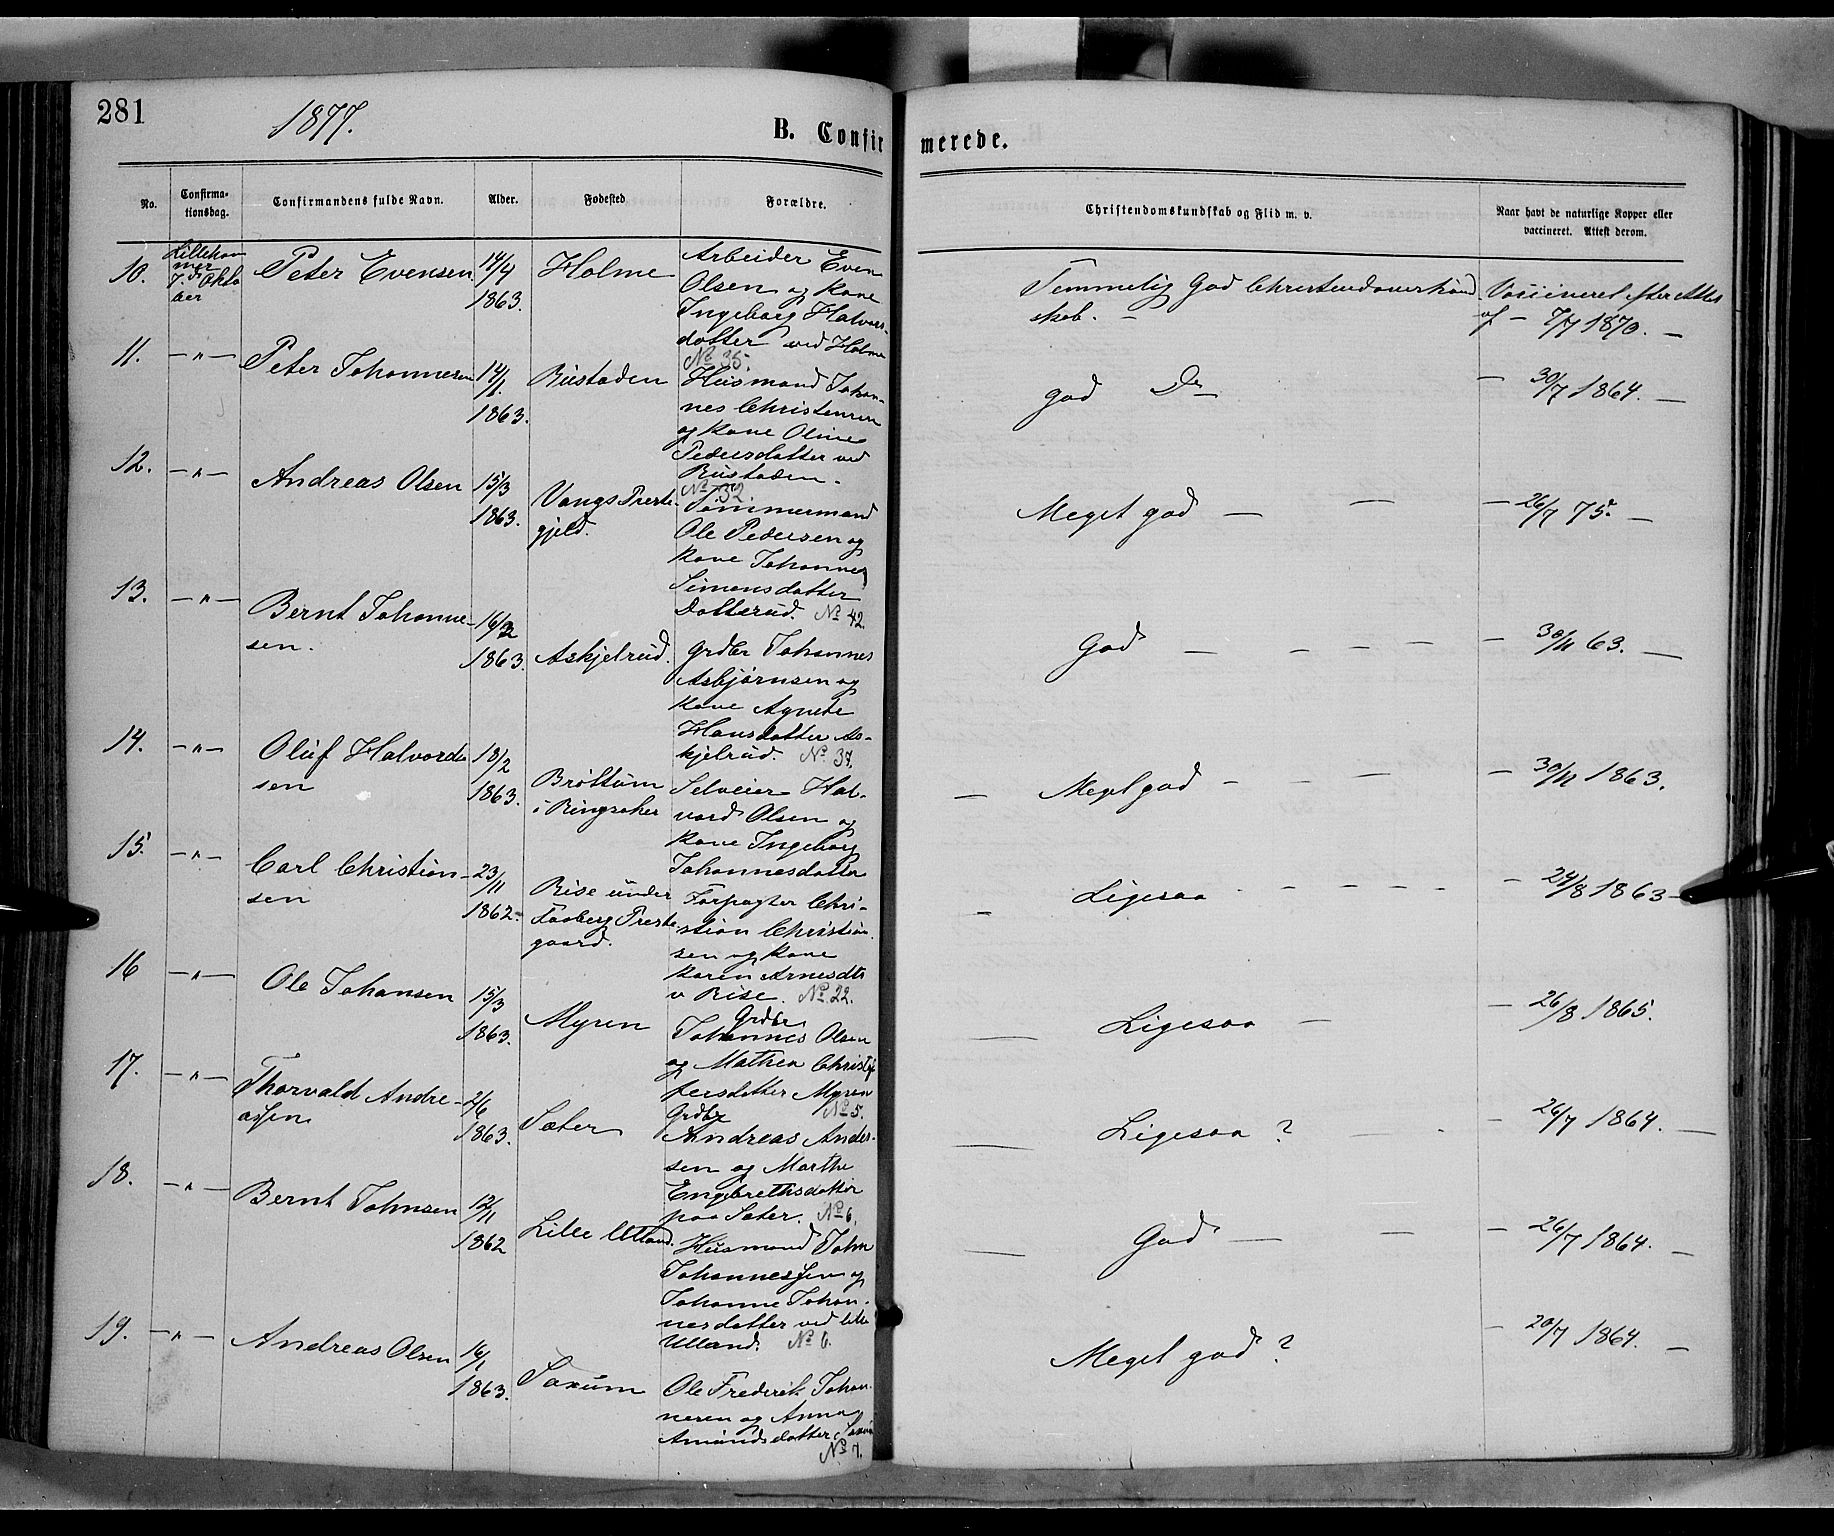 281
1877.
B. Confirmerede.
No.
Confirma-
tionsdag.
Confirmandens fulde Navn.
Alder.
Fødested
Forældre.
Christendomskundskab og Flid m. v.
Naar havt de naturlige Kopper eller
vaccineret. Attest derom.
10.
Lilleham
mer
7. d Okto
ber
Peter Evensen
14/4
1863.
Holme
Arbeider Even
Olsen og kone
Ingeborg Halvors-
dotter ved Holme
No 35
Temmelig God Christendomskund
skab. -
Vaccineret efter Attest
af - 7/7 1870. -
11.
-"-
Peter Johannesen
14/1
1863.
Bustaden
Husmand Johan-
nes Christensen
og kone Oline
Pedersdatter ved
Bustaden.
No 32
god Do
- 30/7 1864. -
12.
-"-
Andreas Olsen
15/3
1863.
Vangs Preste-
gjeld.
Tømmermand
Ole Pedersen og
kone Johanne
Simensdatter
Dotterud. No 42.
Meget god - -
- 26/7 75. -
13.
-"-
Bernt Johanne-
sen.
16/3
1863.
Askjelrud.
Grdbr Johannes
Asbjørnsen og
kone Agnete
Hansdatter As-
kjelrud. No 37.
God - - - - -
- 30/11 63. -
14.
-"-
Oluf Halvord-
sen
18/2
1863.
Brøttum
i Ringsaker
Selveier Hal-
vord Olsen og
kone Ingeborg
Johannesdatter
- Meget god - - -
- 30/11 1863.
15.
-"-
Carl Christian-
sen
23/11
1862.
Rise under
Faaberg Preste
gaard.
Forpagter Chri-
stian Christian
sen og kone
Karen Arnesdtr
v Rise. No 22.
- Ligesaa - - - - -
- 24/8 1863
16
-"-
Ole Johansen
15/3
1863.
Myren
Grdbr
Johannes Olsen
og Mathea Christof
fersdatter Myren
No 5.
- Ligesaa -
- 26/8 1865.
17.
-"-
Thorvald Andre-
assen
2/6
1863.
Sæter
Grdbr
Andreas Ander-
sen og Marthe
Engebrethsdatter
paa Sæter. No 6.
- Ligesaa ? - -
- 26/7 1864. -
18.
-"-
Bernt Johnsen
12/11
1862
Lille Ulland.
Husmand John
Johannessen og
Johanne Johan-
nesdatter ved lille
Ulland. No 6.
- God - -
- 26/7 1864. -
19.
-"-
Andreas Olsen
16/1
1863.
Saxum
Ole Frederik Johan-
nesen og Anna
Amundsdatter Saxum
No 7.
Meget god ?
- 20/7 1864. -